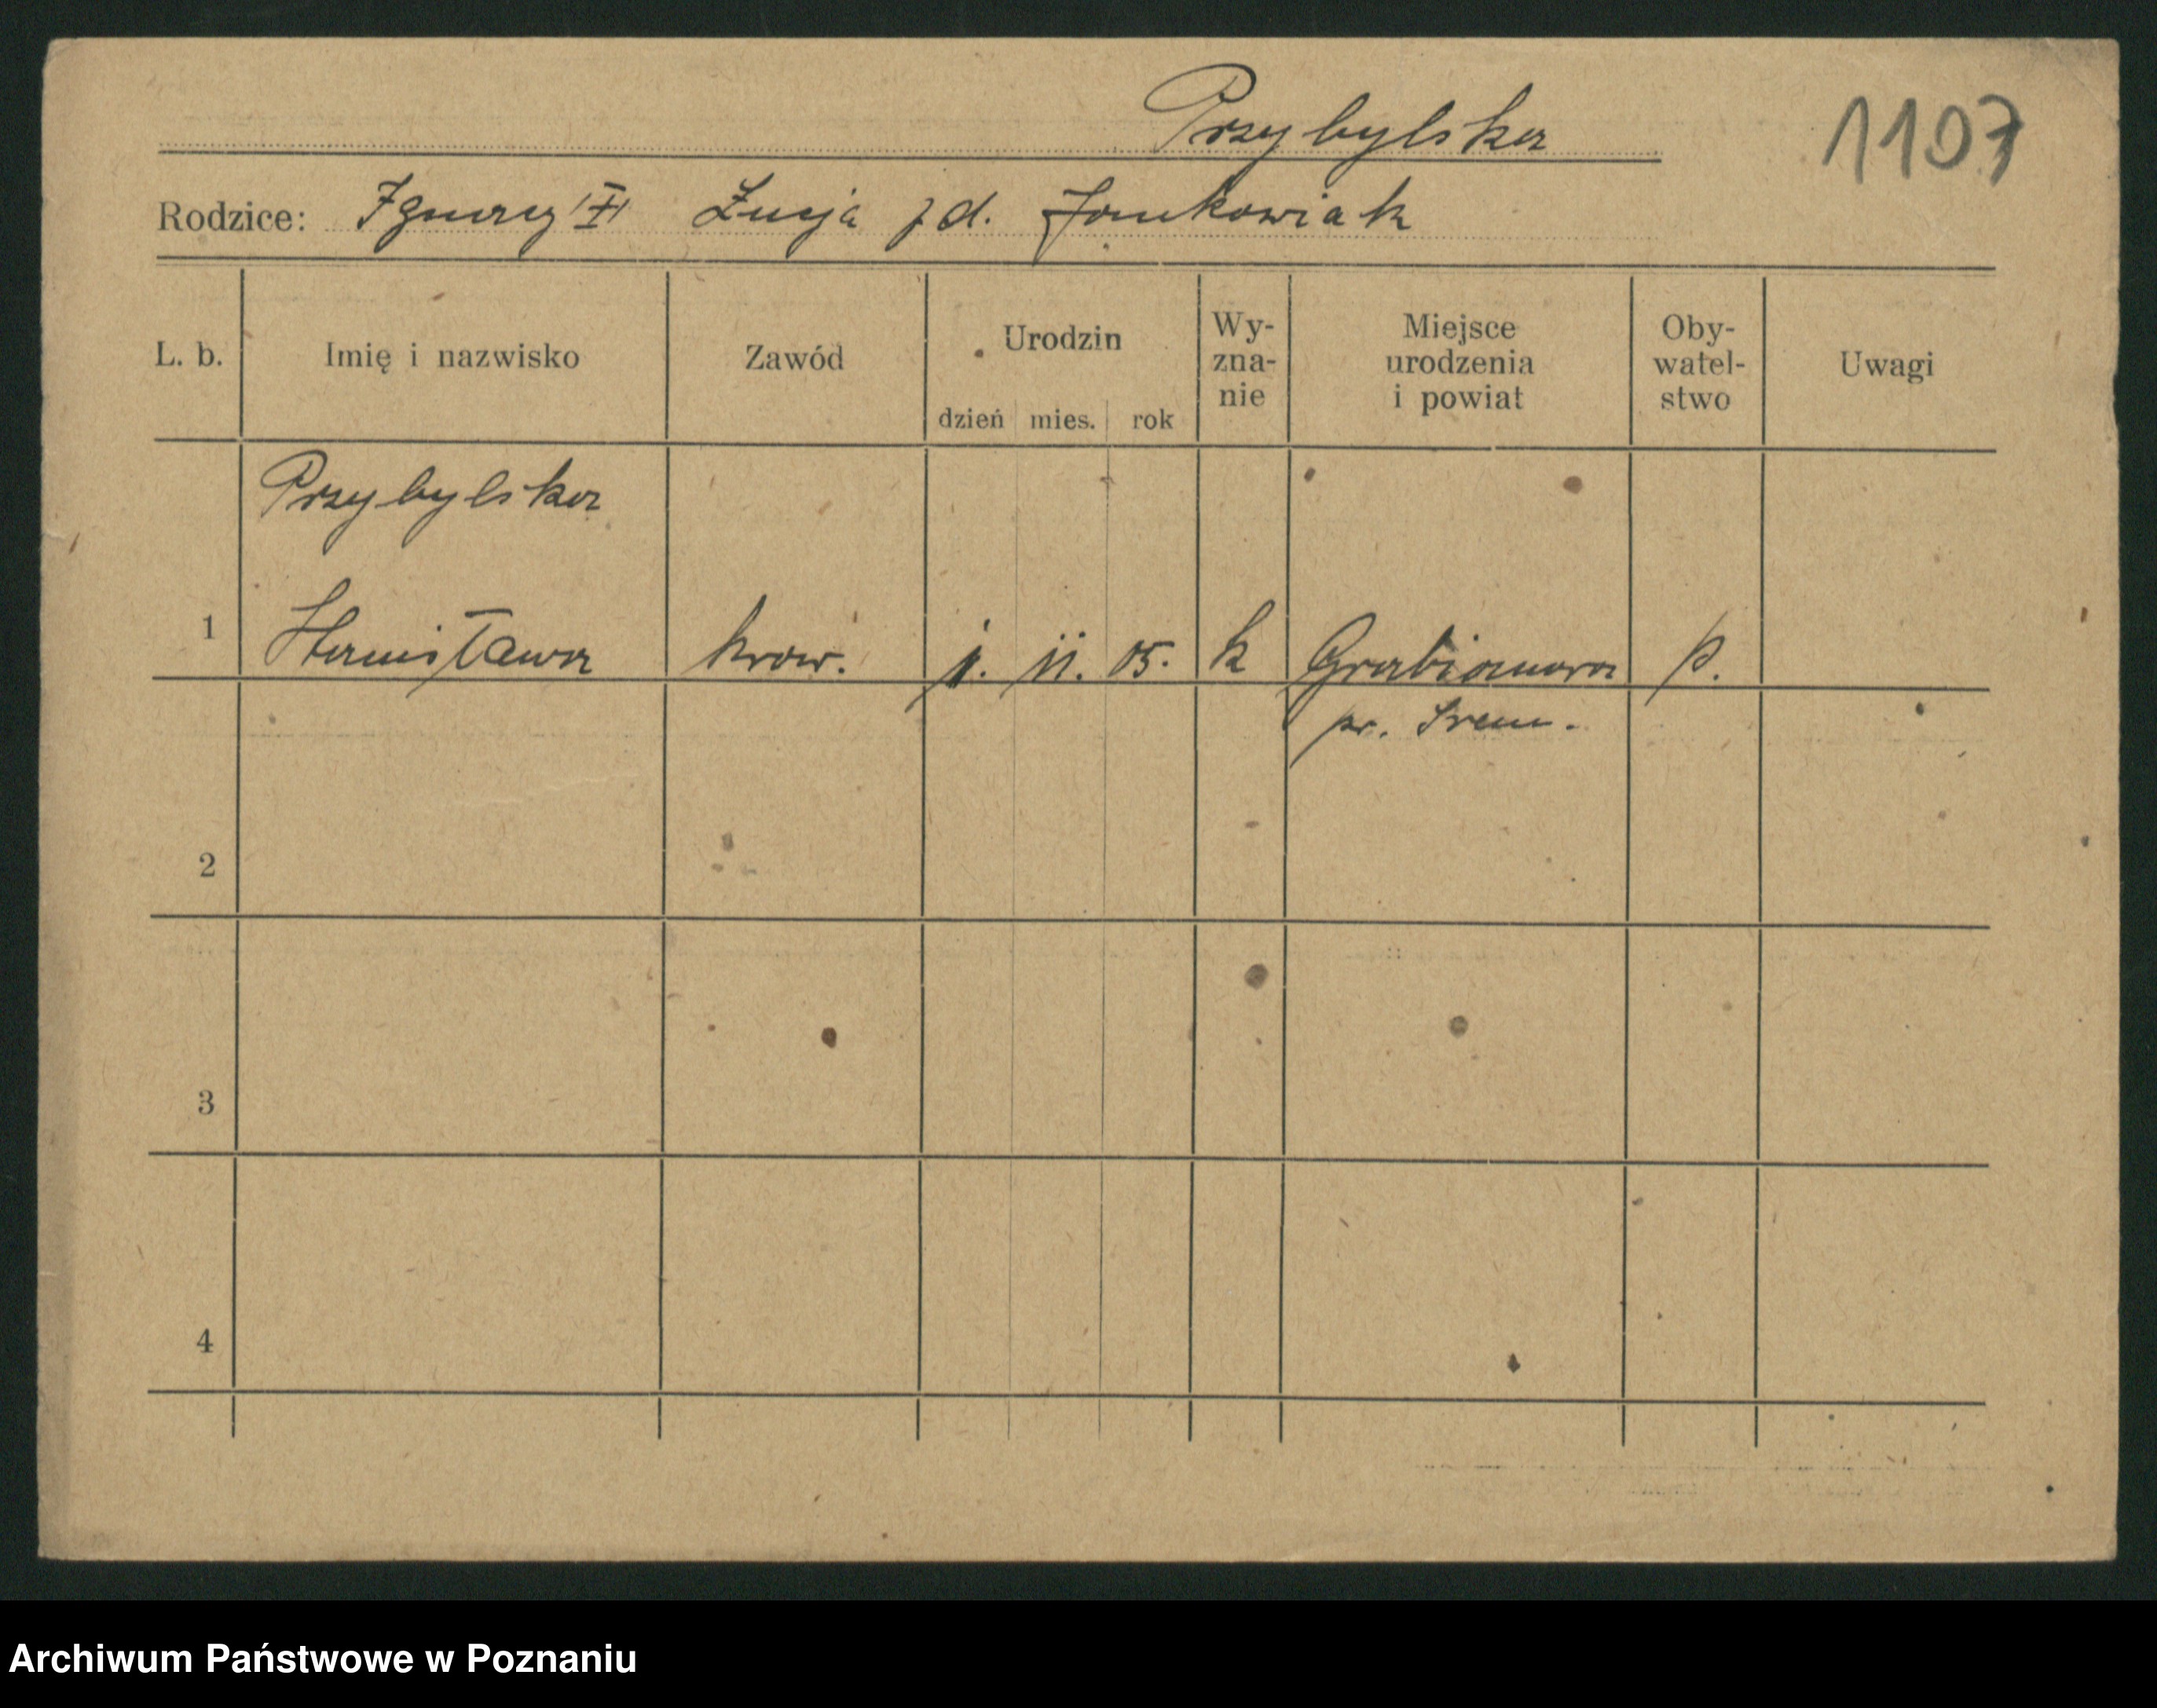 Przybylska
1107
Rodzice: Ignacy Łucja z d. Jankowiak
L. b. Imię i nazwisko Zawód Urodzin dzień mies. rok Wy-zna-nie Miejsce urodzenia i powiat Oby-watel-stwo Uwagi
Przybylska
1 Stanisława kraw. 1. 11. 05. k Grabianowo p.
pr. Śrem.
2
3
4
Archiwum Państwowe w Poznaniu